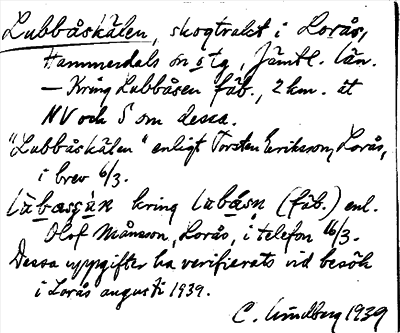 Lubbåskälen, skogtrakt i Lorås,
Hammerdals sn o tg, Jämtl. län.
— Kring Lubbåsen fäb., 2 km. åt
NV och S om dessa.
"Lubbåskälen" enligt Torsten Eriksson, Lorås,
i brev 6/3.
kring (fäb.) enl.
Olof Månsson, Lorås, i telefon 16/3.
Dessa uppgifter ha verifierats vid besök
i Lorås augusti 1939.
C. Lindberg 1939